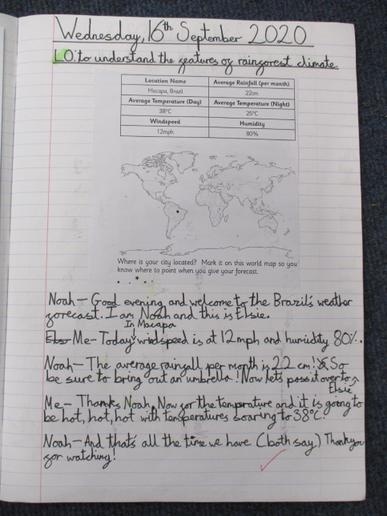 Wednesday, 16th September 2020
LO: to understand the features of rainforest climate.
Location Name Average Rainfall (per month)
Macapa, Brazil 22cm
Average Temperature (Day) Average Temperature (Night)
38°C 25°C
Windspeed Humidity
12mph 80%
Where is your city located? Mark it on this world map so you
know where to point when you give your forecast.
Noah - Good evening and welcome to the Brazil's weather
forecast. I am Noah and this is Elsie.
In Macapa
Me - Today windspeed is at 12mph and humidity 80%.
Noah - The average rainfall per month is 22cm! So
be sure to bring out an umbrella! Now lets pass it over to
Elsie
Me - Thanks Noah. Now for the temperature and it is going to
be hot, hot, hot with temperatures soaring to 38°C!
Noah - And that's all the time we have (both say) Thank you
for watching!